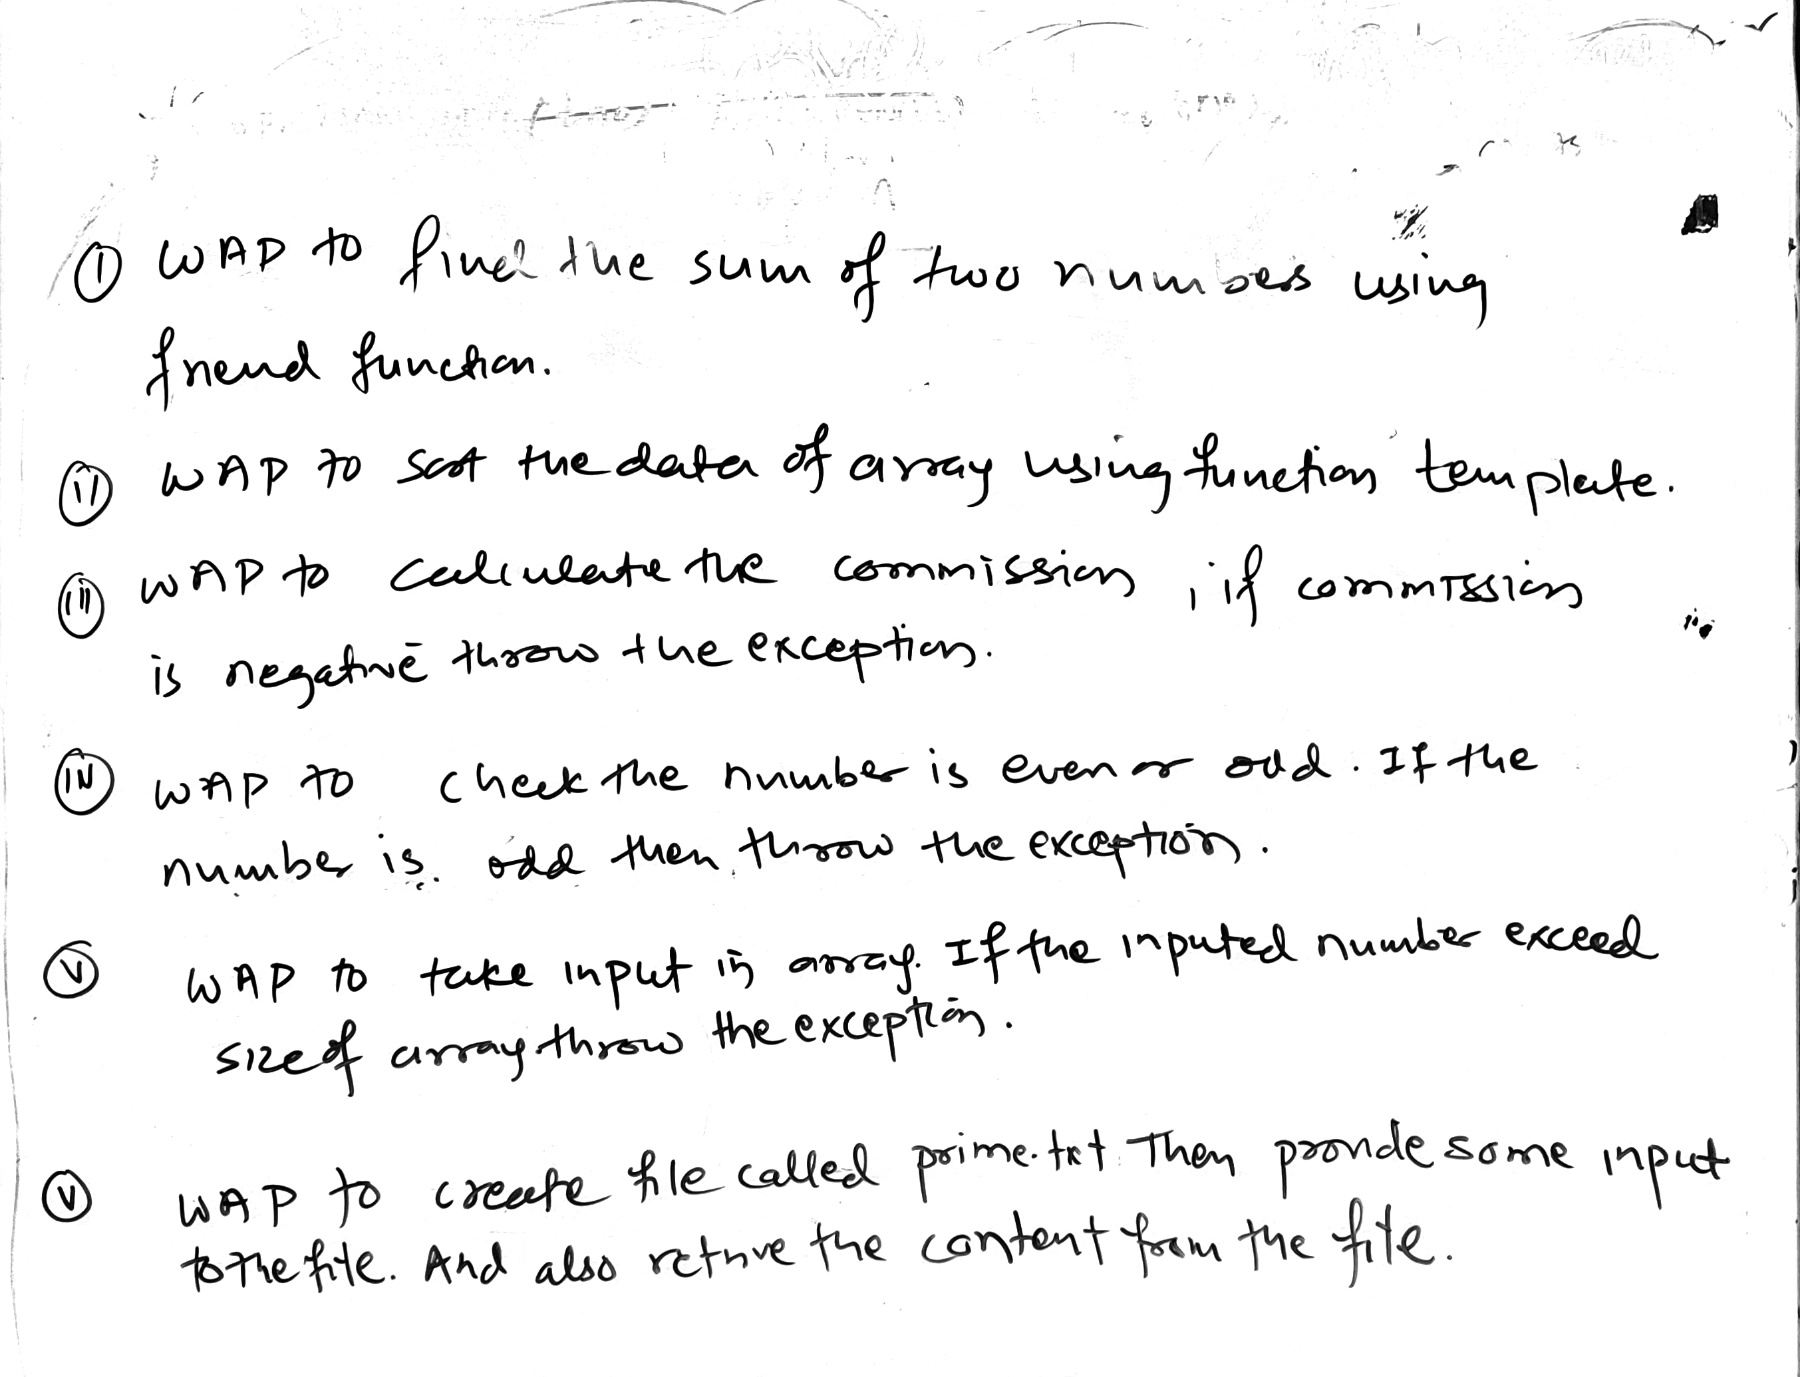 ① WAP to find the sum of two numbers using
friend function.
(ii) WAP to sort the data of array using function template.
(iii) WAP to calculate the commission, if commission
is negative throw the exception.
(iv) WAP to check the number is even or odd. If the
number is odd then throw the exception.
(v) WAP to take input in array. If the inputed number exceed
size of array throw the exception.
(v) WAP to create file called prime.txt Then provide some input
to the file. And also retrive the content from the file.